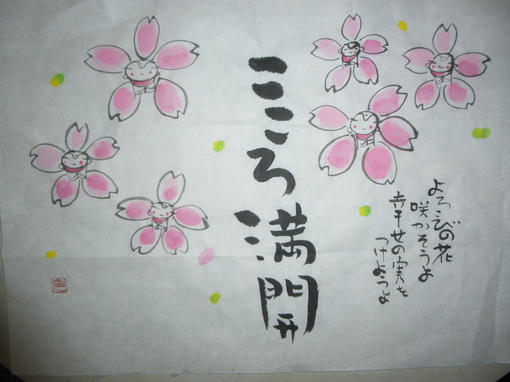 こころ満開
よろこびの花
咲かそうよ
幸せの実を
つけようよ